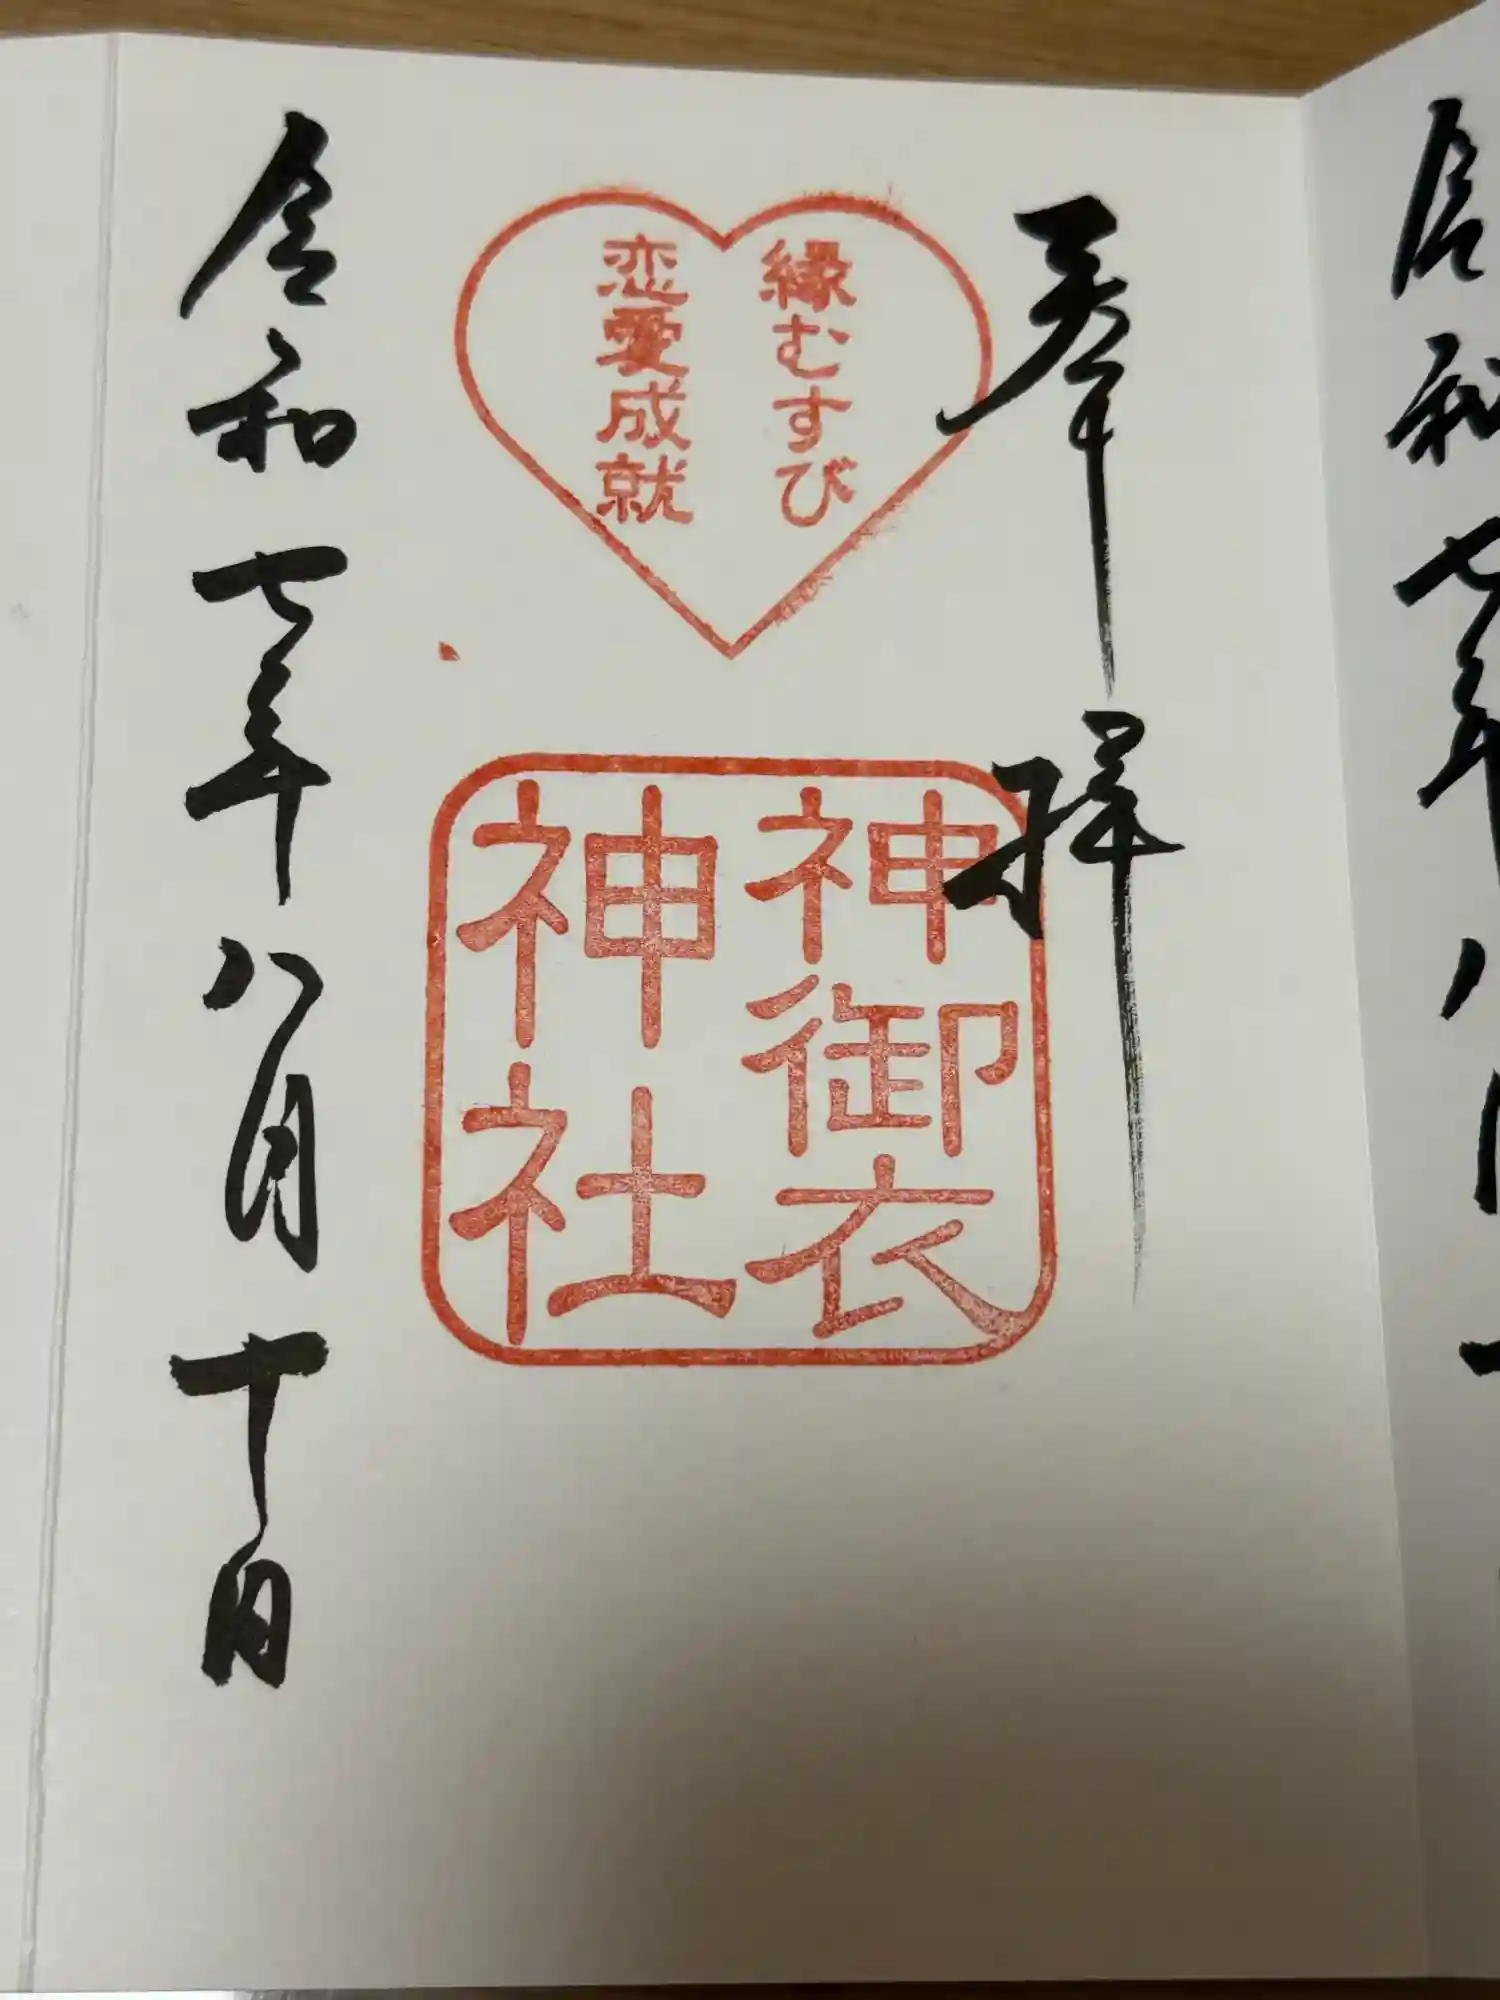 奉拝
縁むすび
恋愛成就
神御衣
神社
令和七年八月十日